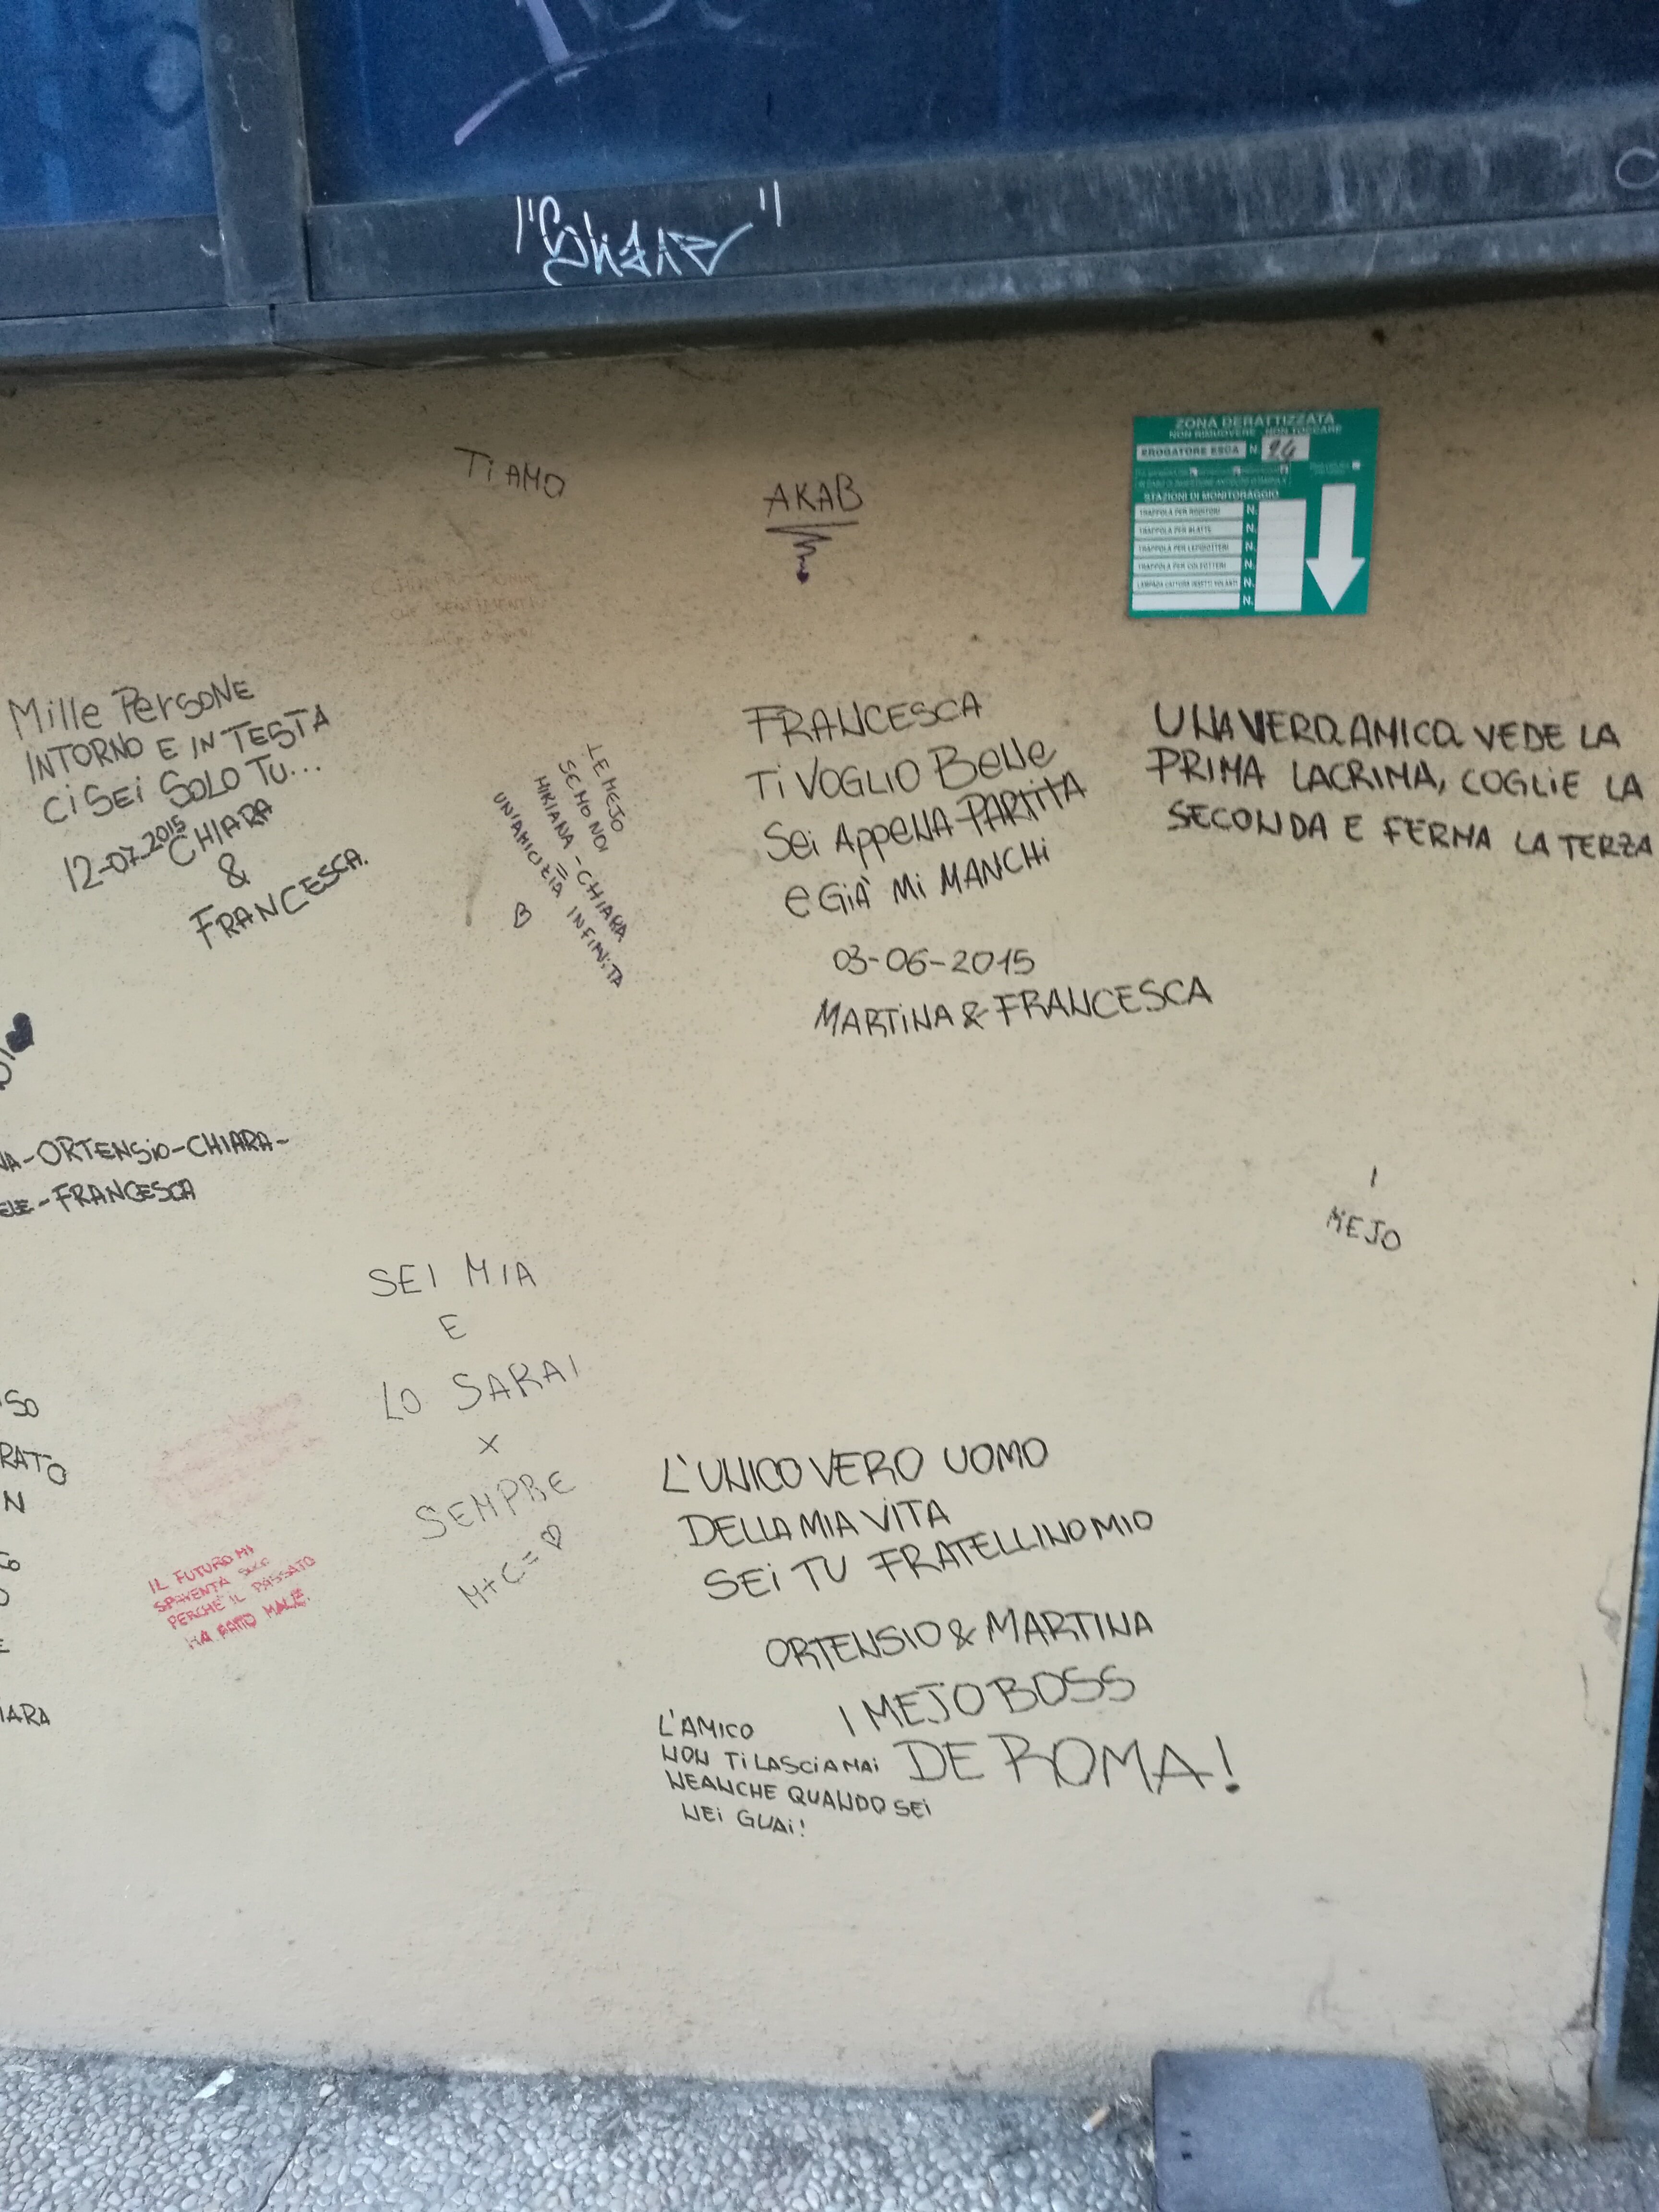 TI AMO
AKAB
ZONA DERATTIZZATA
NON RIMUOVERE - NON TOCCARE
EROGATORE ESCA N 24
STAZIONI DI MONITORAGGIO
TRAPPOLA PER RODITORI N.
TRAPPOLA PER BLATTE N.
TRAPPOLA PER LEPIDOTTERI N.
TRAPPOLA PER COLEOTTERI N.
LAMPADA CATTURA INSETTI VOLANTI N.
N.
CHE SENTIMENTI
Mille PersoNE
INTORNO E IN TESTA
Ci SEi SOLO TU...
12-07-2015
CHIARA
&
FRANCESCA.
LE MEJO
SEMO NOI
MIRIANA - CHIARA
=
UN'AMICIZIA INFINITA
FRANCESCA
Ti VOGLIO BeNe
Sei AppeNA PARTITA
e GiÀ Mi MANCHi
03-06-2015
MARTiNA & FRANCESCA
UNA VERA AMICA VEDE LA
PRIMA LACRIMA, COGLIE LA
SECONDA E FERMA LA TERZA
NA-ORTENSiO-CHIARA-
ELE-FRANCESCA
I
MEJO
SEI MIA
E
LO SARAI
X
SEMPRE
M+C=
SO
RATO
N
IARA
IL FUTURO MI
SPAVENTA SOLO
PERCHÈ IL PASSATO
HA FATTO MALE.
L'UNICO VERO UOMO
DELLA MIA VITA
SEi TU FRATELLINO MIO
ORTENSIO & MARTINA
I MEJO BOSS
DE ROMA!
L'AMICO
NON Ti LASCiA MAi
NEANCHE QUANDO SEi
NEi GUAi!